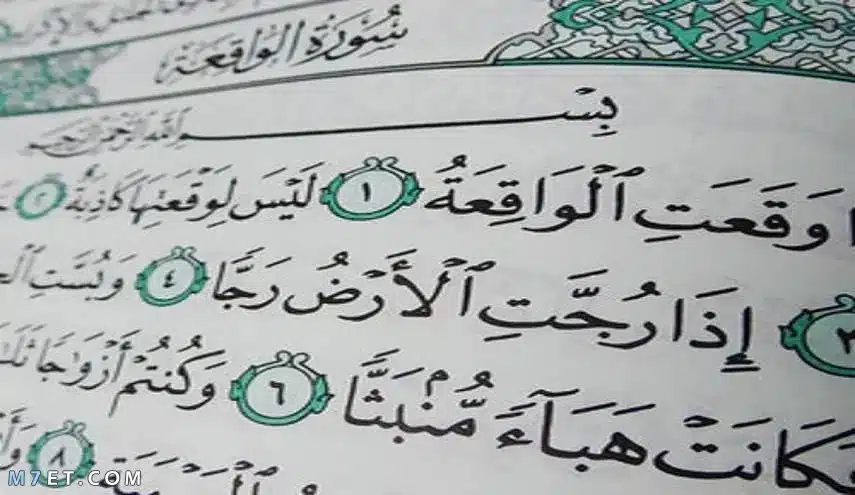 سُورَةُ الْوَاقِعَة
بِسْمِ اللَّهِ الرَّحْمَٰنِ الرَّحِيمِ
وَقَعَتِ ٱلْوَاقِعَةُ ١ لَيْسَ لِوَقْعَتِهَا كَاذِبَةٌ ٢
٣ إِذَا رُجَّتِ ٱلْأَرْضُ رَجًّا ٤ وَبُسَّتِ
فَكَانَتْ هَبَآءً مُّنۢبَثًّا ٦ وَكُنتُمْ أَزْوَٰجًا
٨
M7ET.COM